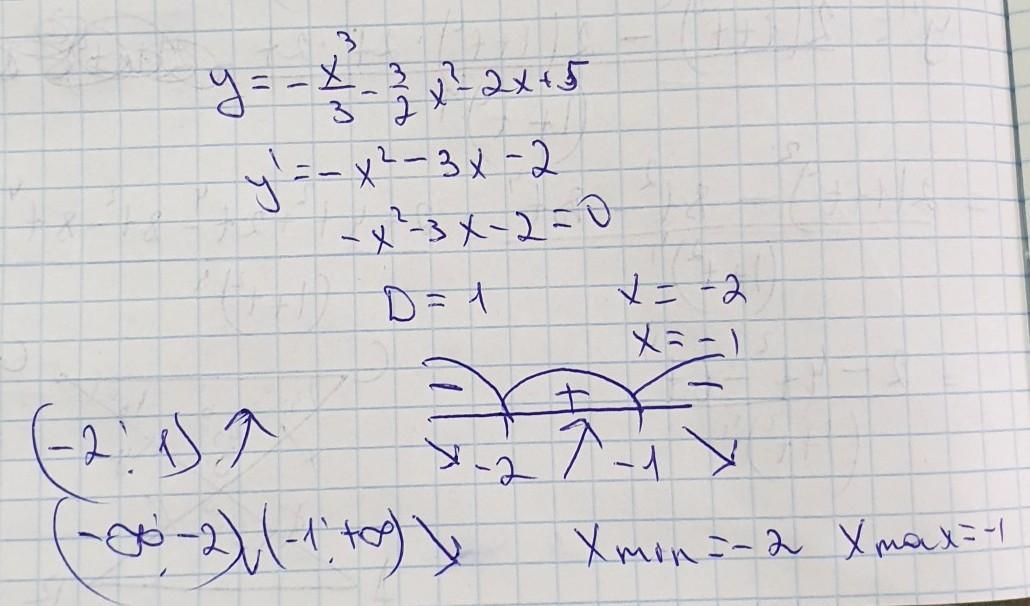 y = -x³/3 - 3/2 x² - 2x + 5
y' = -x² - 3x - 2
-x² - 3x - 2 = 0
D = 1 x = -2
x = -1
- + -
(-2; 1) ↗ ↘ -2 ↗ -1 ↘
(-∞; -2), (-1; +∞) ↘ Xmin = -2 Xmax = -1